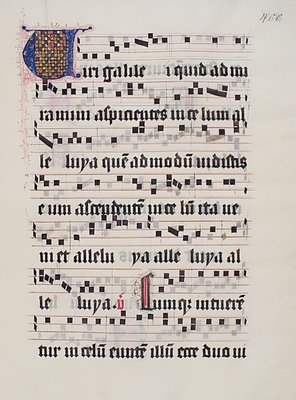 Viri galile i quid admi
ramini aspicientes in celum al
le luya quē admodū uidistis
eum ascendentē in celū ita ue
niet allelu ya alle luya al
le luya. V̄ Cumq; intuerēt
tur in celū euntē illū ecce duo ui